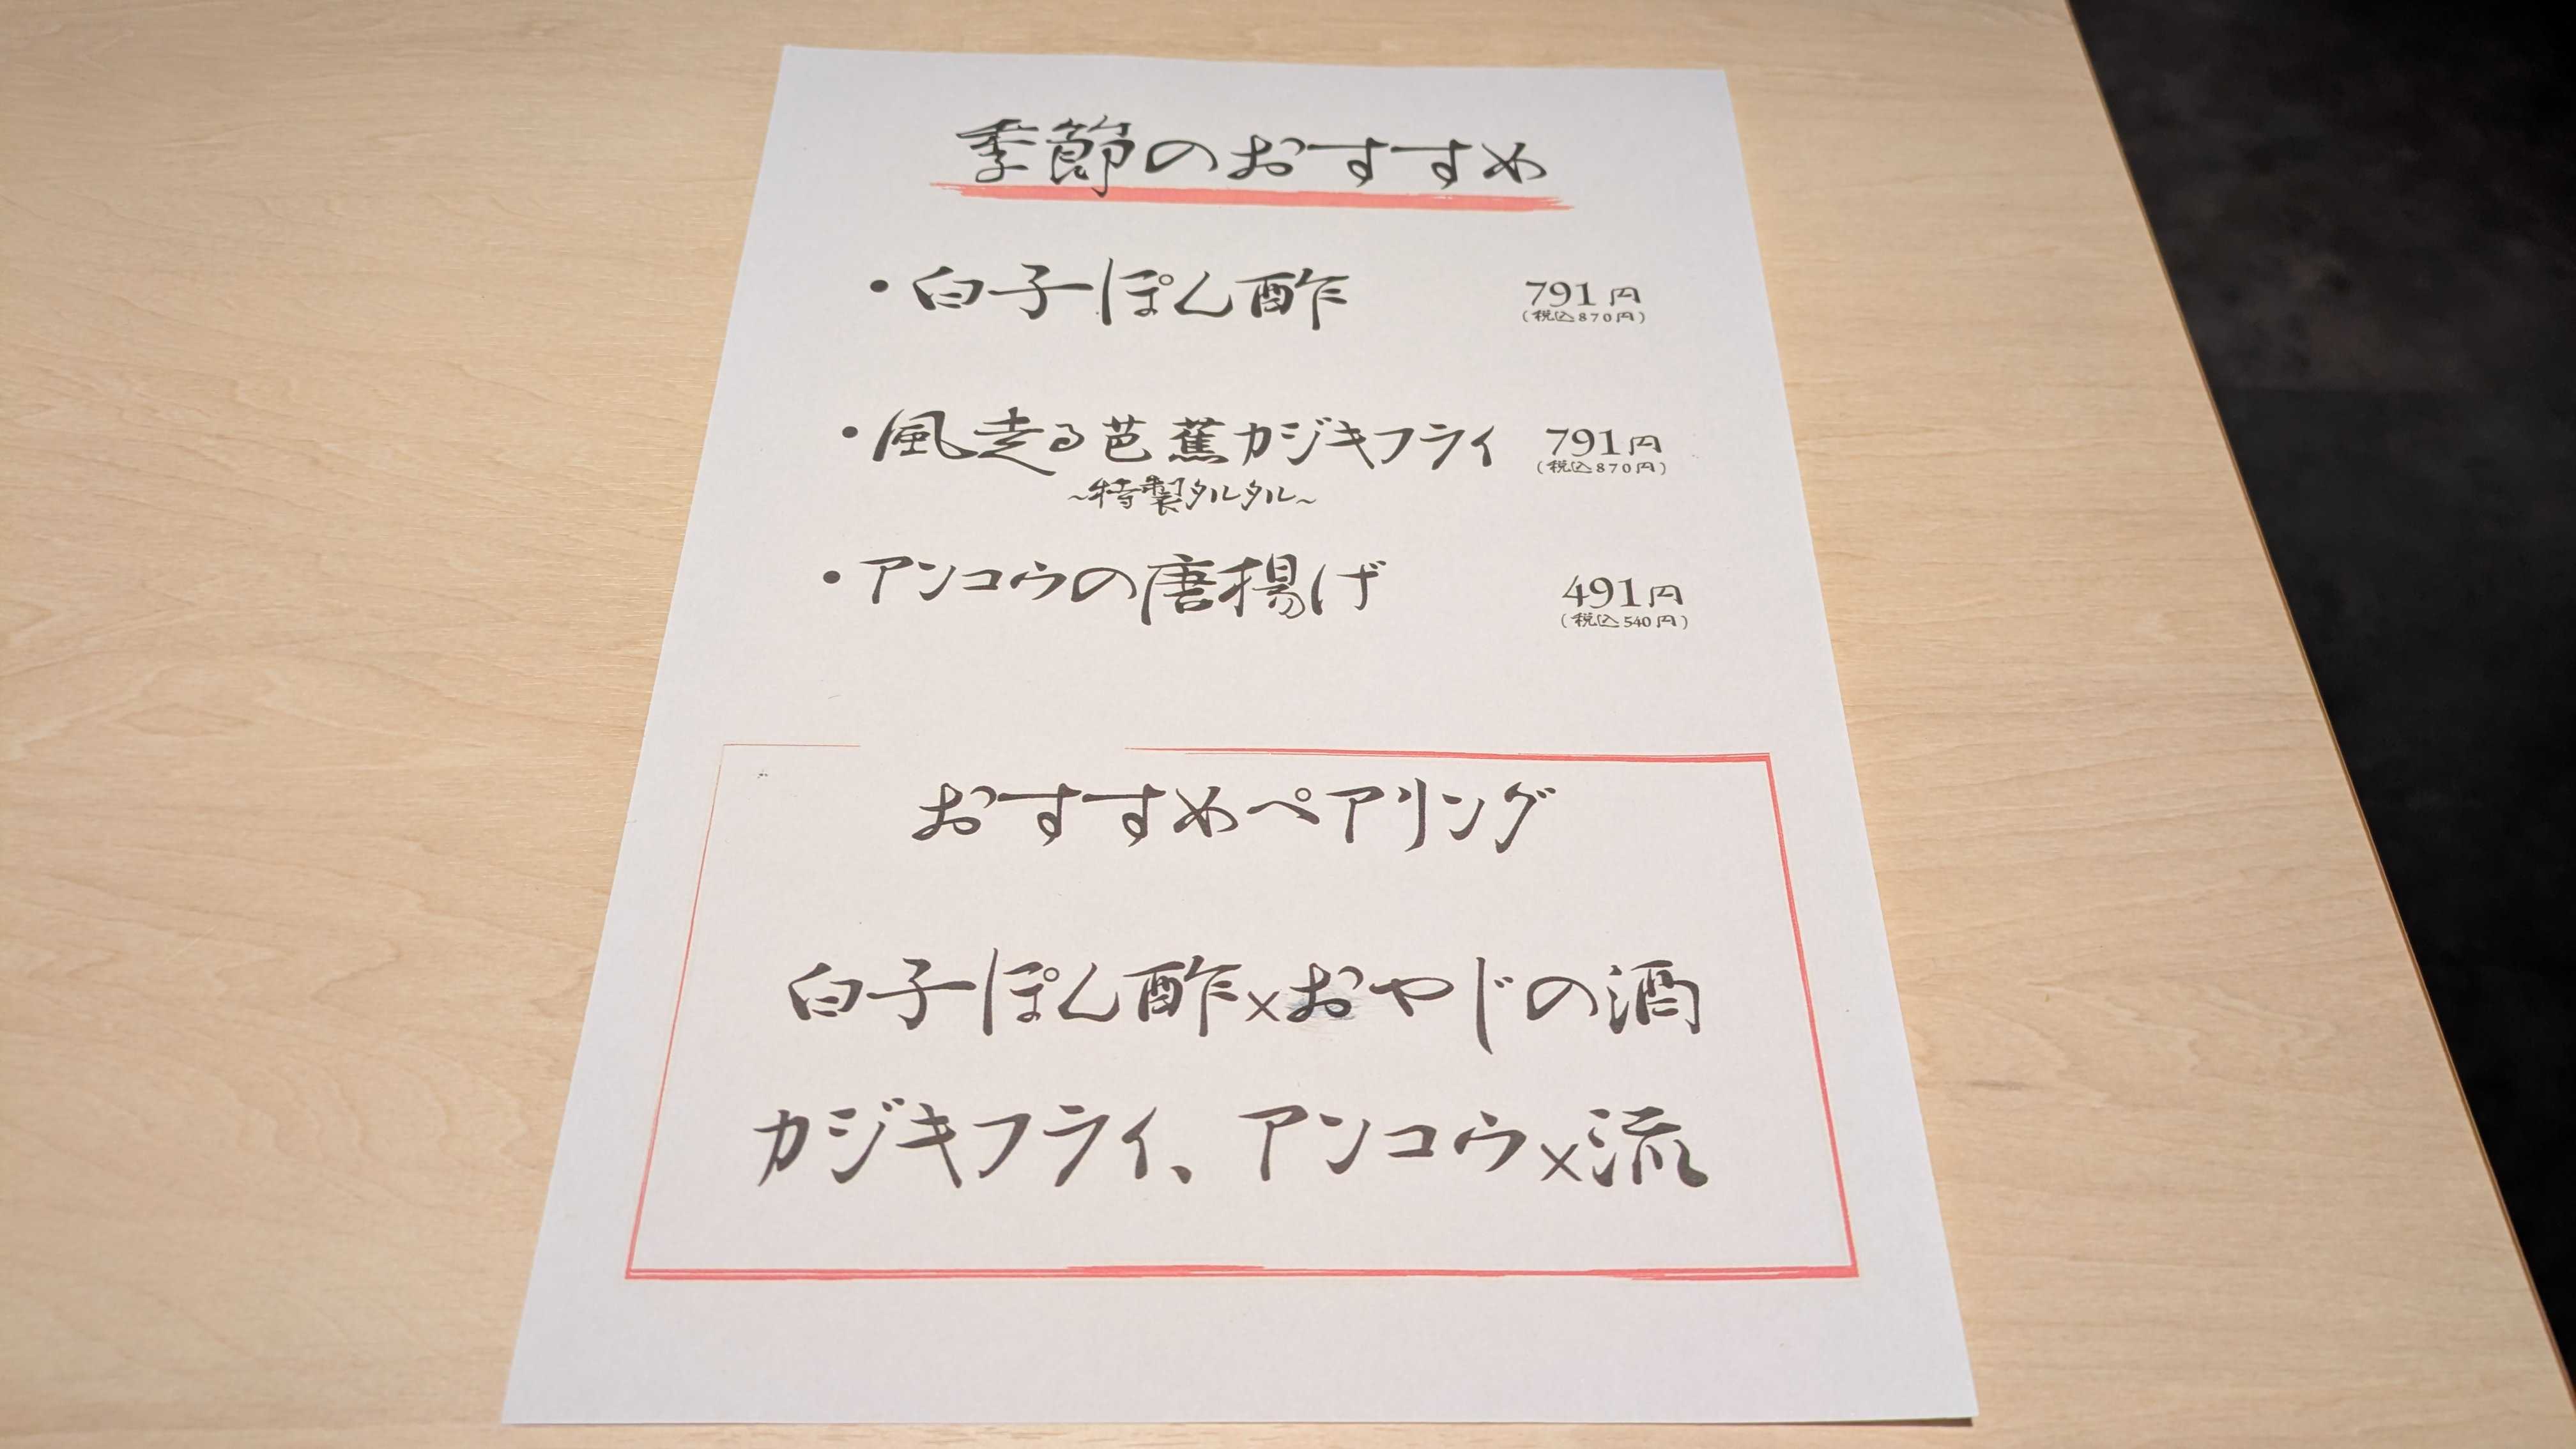 季節のおすすめ
・白子ぽん酢 791円
(税込870円)
・風走る芭蕉カジキフライ 791円
(税込870円)
~特製タルタル~
・アンコウの唐揚げ 491円
(税込540円)
おすすめペアリング
白子ぽん酢×おやじの酒
カジキフライ、アンコウ×流